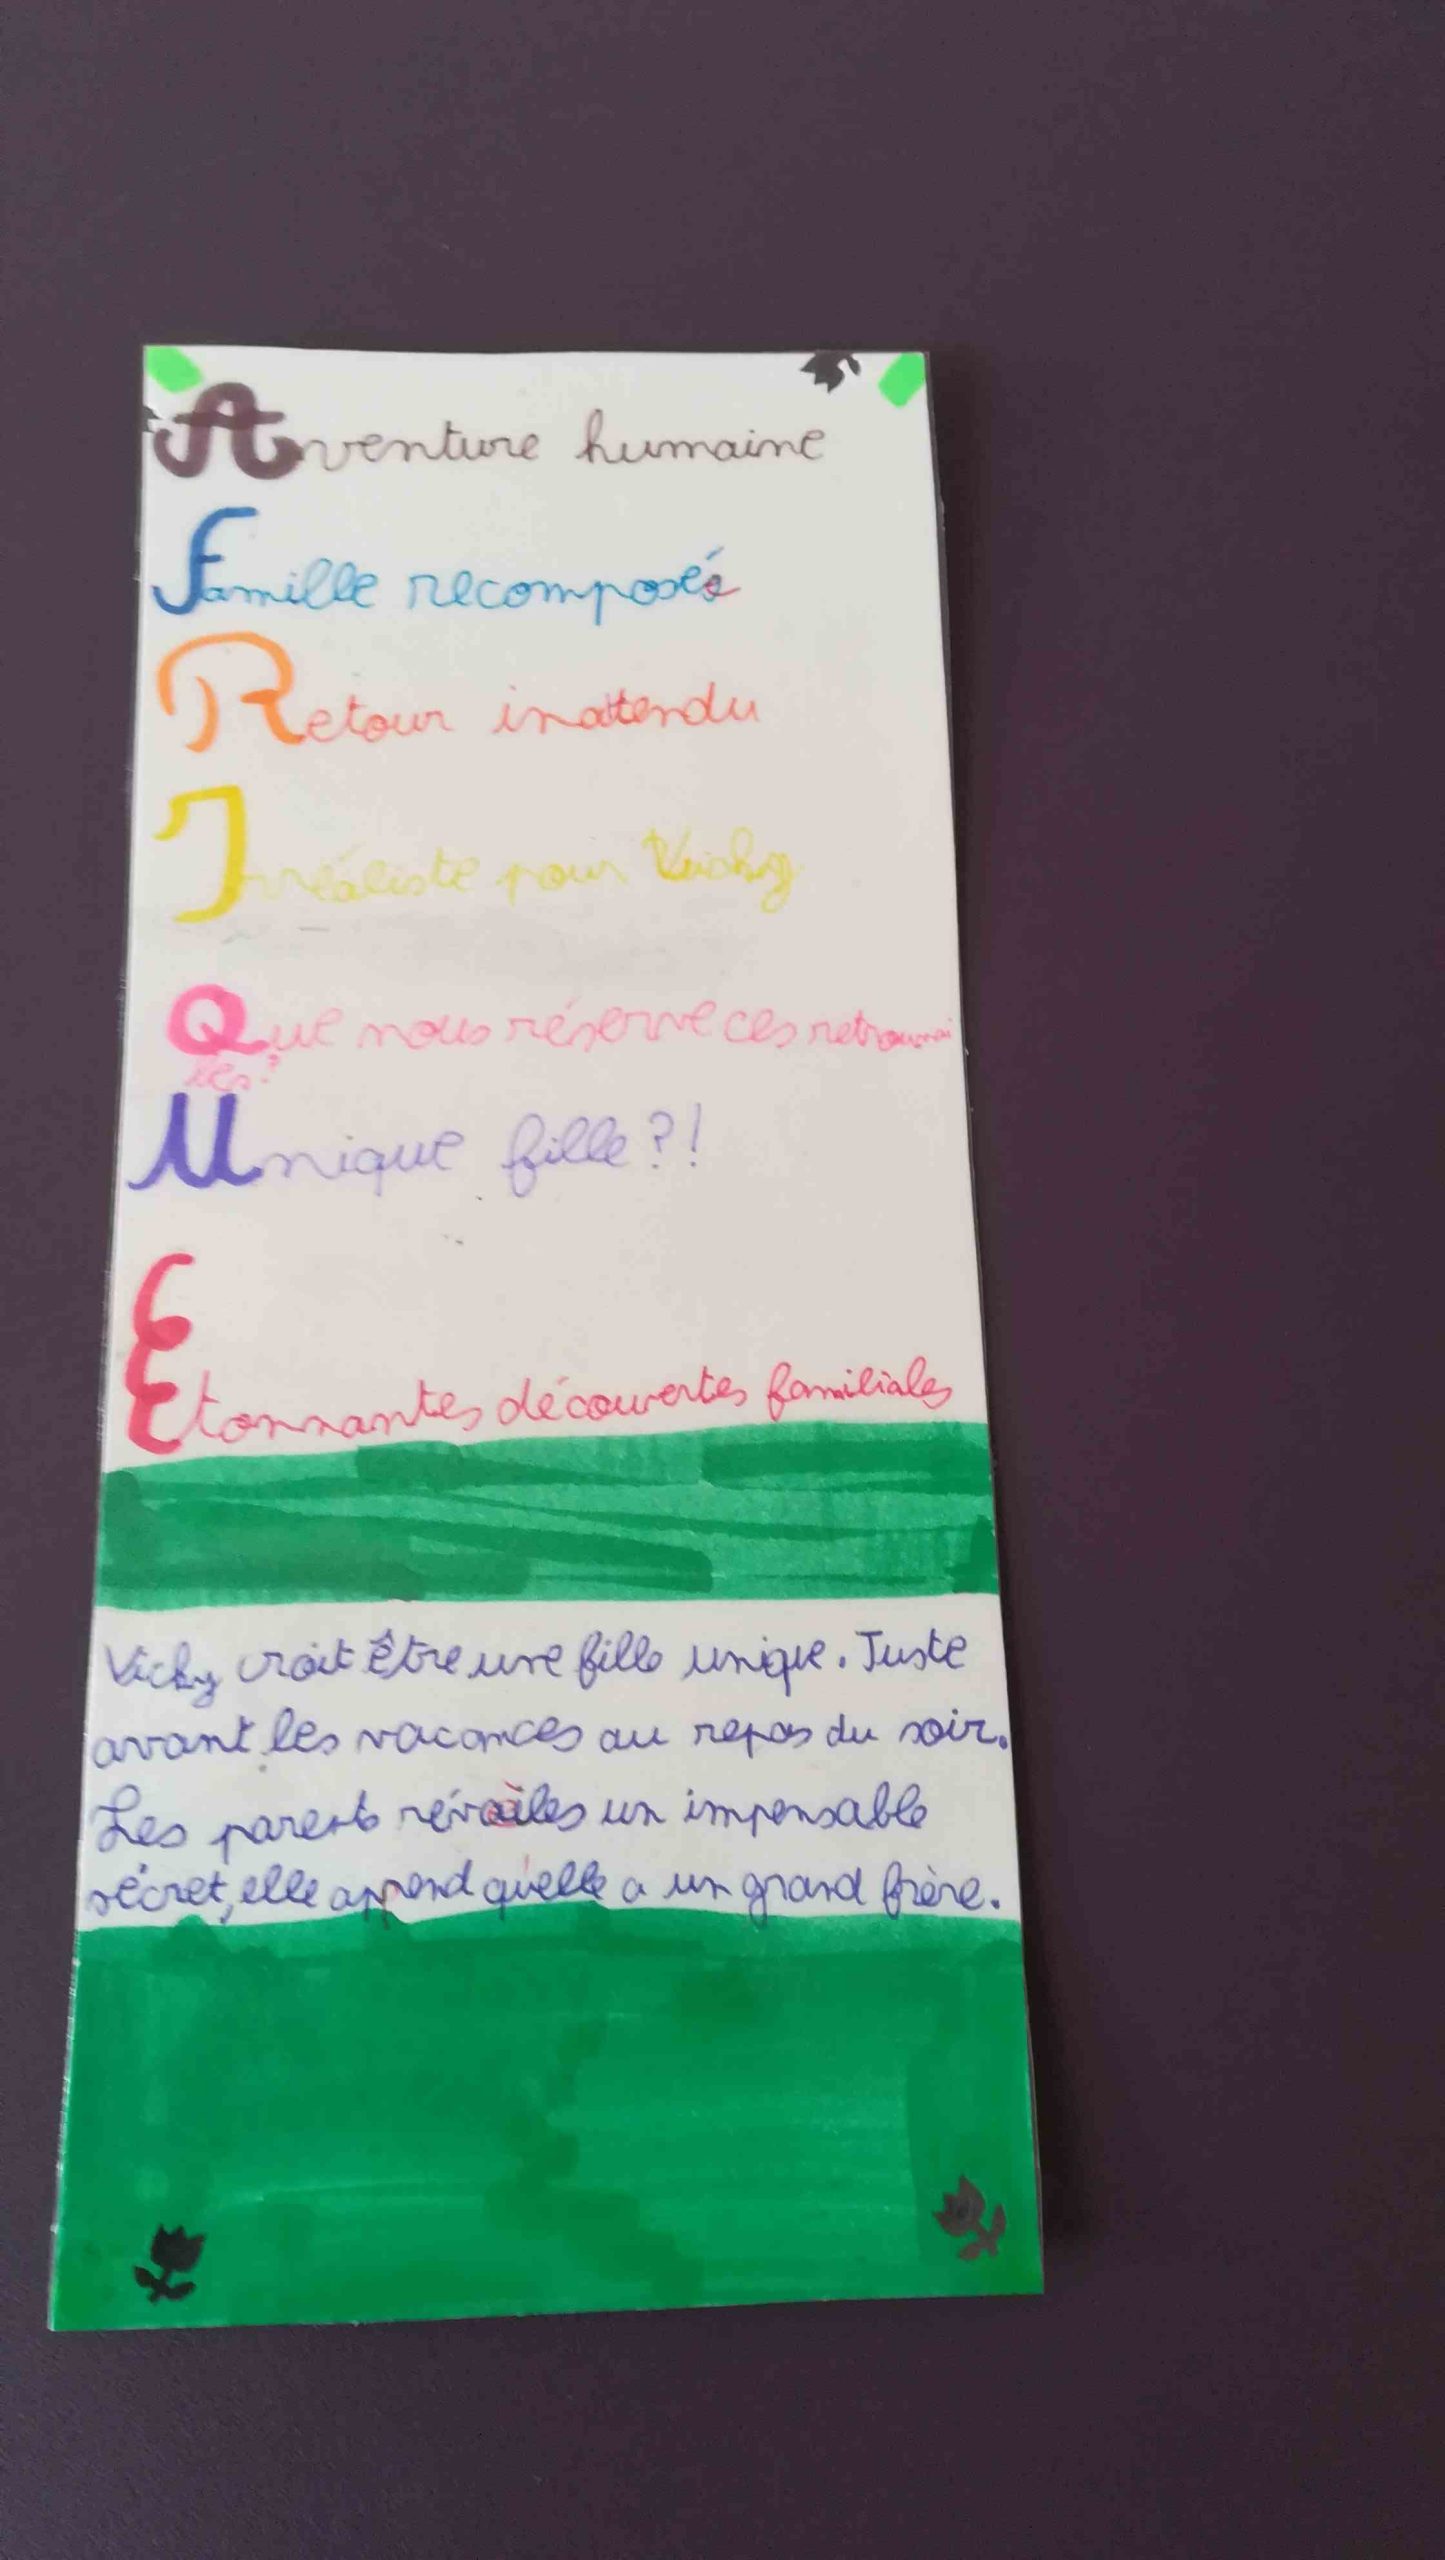 Aventure humaine
Famille recomposée
Retour inattendu
Irréaliste pour Vicky
Que nous réserve ces retrouvai
lles?
Unique fille?!
Etonnantes découvertes familiales
Vicky croit être une fille unique. Juste
avant les vacances au repas du soir.
Les parents révèiles un impensable
sécret, elle apprend qu'elle a un grand frère.